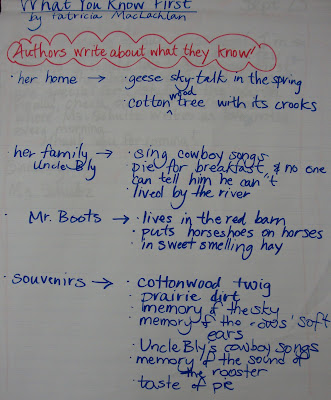 What You Know First
by Patricia MacLachlan
Authors write about what they know!
· her home → · geese sky talk in the spring
· cottonwood tree with its crooks
· her family → · sing cowboy songs
Uncle Bly · pie for breakfast & no one
can tell him he can't
· lived by the river
· Mr. Boots → · lives in the red barn
· puts horseshoes on horses
· in sweet smelling hay
· souvenirs → · cottonwood twig
· prairie dirt
· memory of the sky
· memory of the cows' soft
ears
· Uncle Bly's cowboy songs
· memory of the sound of
the rooster
· taste of pie